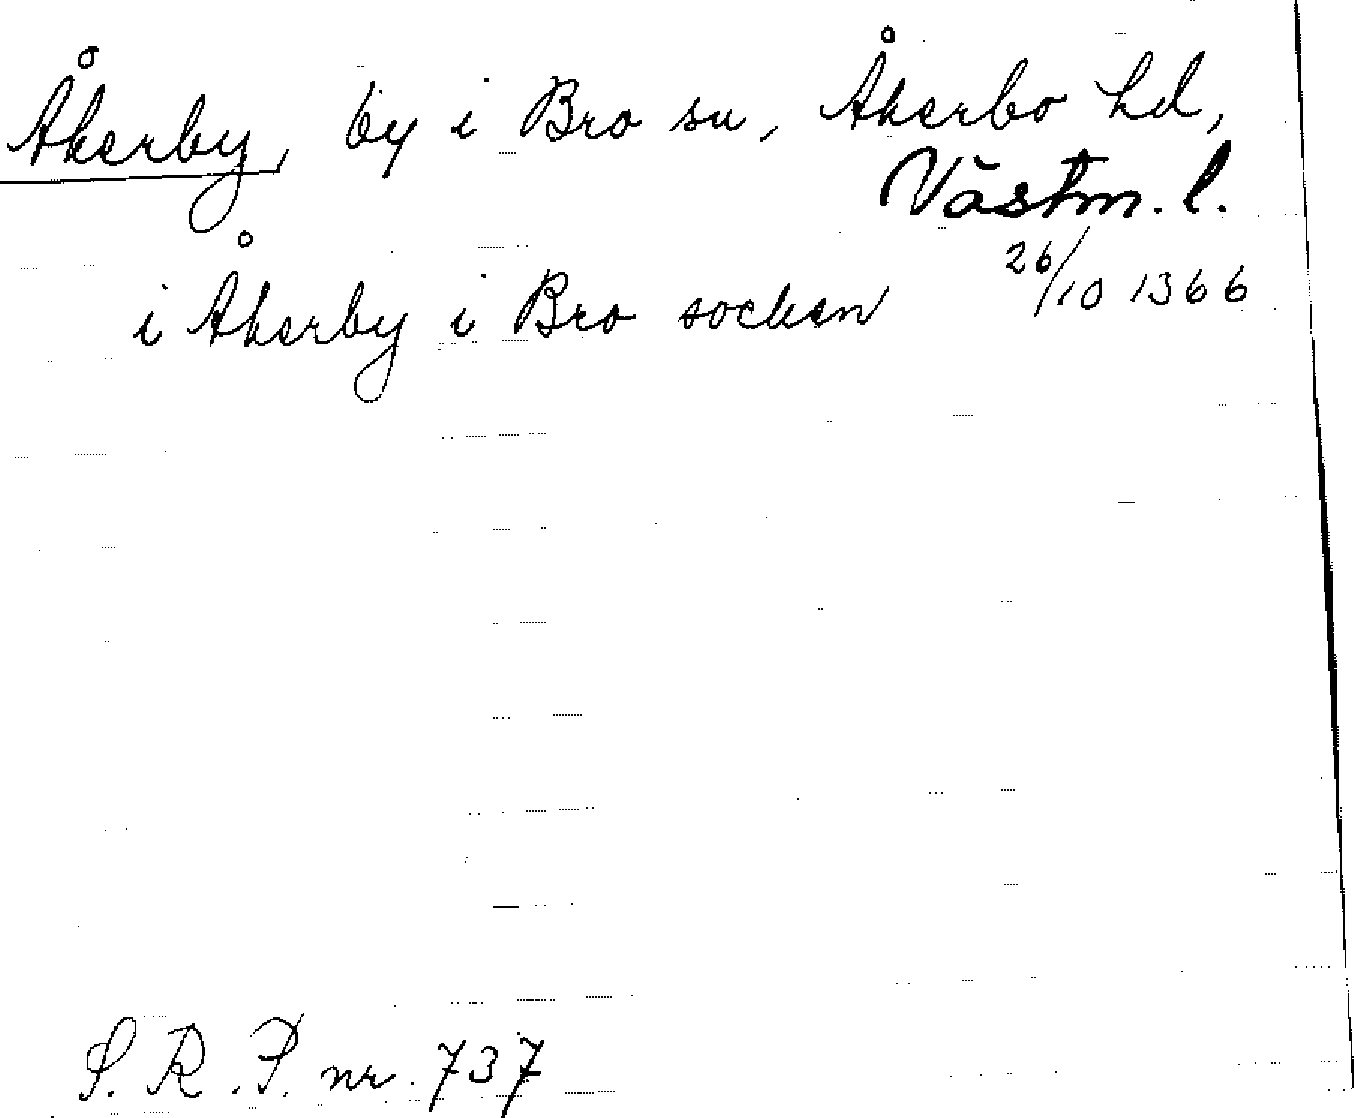 Åkerby, by i Bro sn, Åkerbo hd,
Västm. l.
i Åkerby i Bro socken 26/10 1366
S. R. P. nr. 737